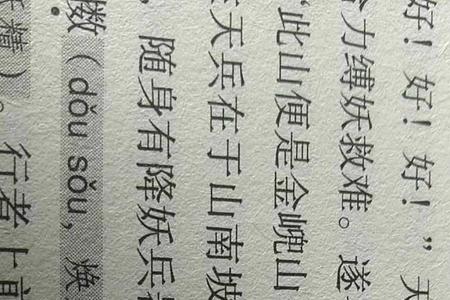 好！好！好！”天
力缚妖救难。遂
“此山便是金兜山
天兵在于山南坡
，随身有降妖兵
擞（dǒu sǒu，焕
精）。行者上